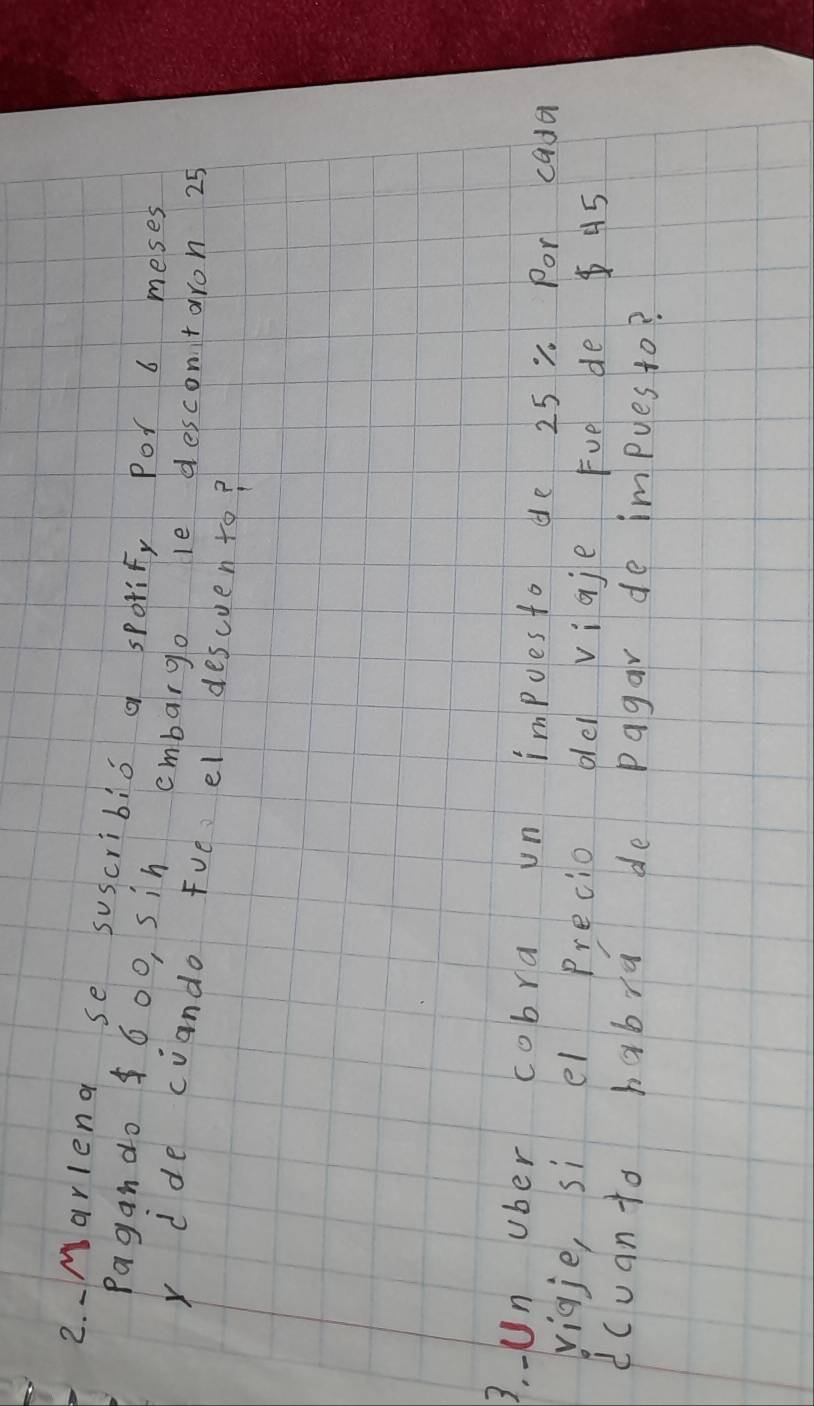 2.-Marlena se suscribió a spotify por 6 meses
Pagando $600, sin embargo le descontaron 25
y ¿de cuando fue el descuento?
3.-Un uber cobra un impuesto de 25% por cada
viaje, si el precio del viaje fue de $45
¿cuanto habrá de pagar de impuesto?